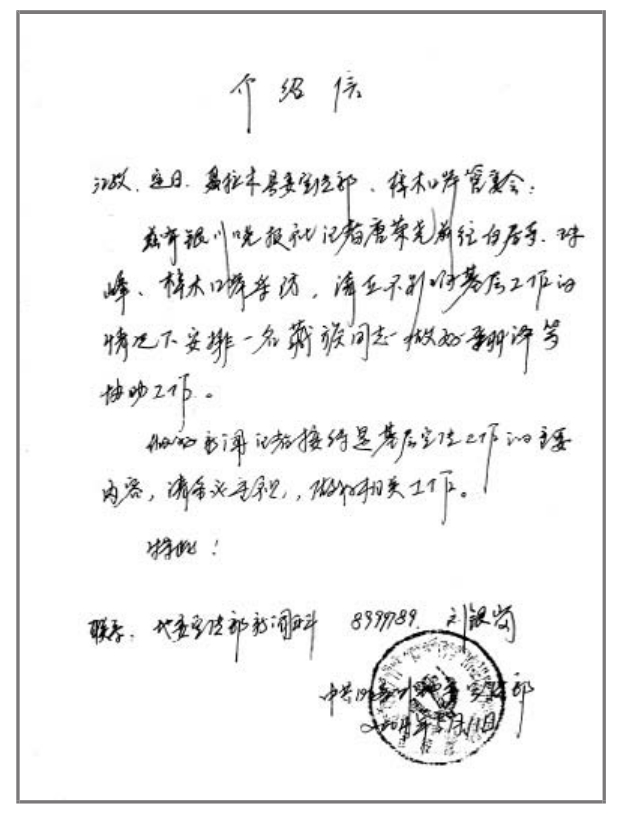 介绍信
江孜、定日、聂拉木县委宣传部、樟木口岸管委会：
兹有银川晚报社记者唐荣尧前往白居寺、珠
峰、樟木口岸采访，请在不影响基层工作的
情况下安排一名藏族同志做好翻译等
协助工作。
做好新闻记者接待是基层宣传工作的主要
内容，请务必重视，做好相关工作。
特此！
联系：地委宣传部新闻科 8999789 刘银岗
中共日喀则地委宣传部
2004年5月11日